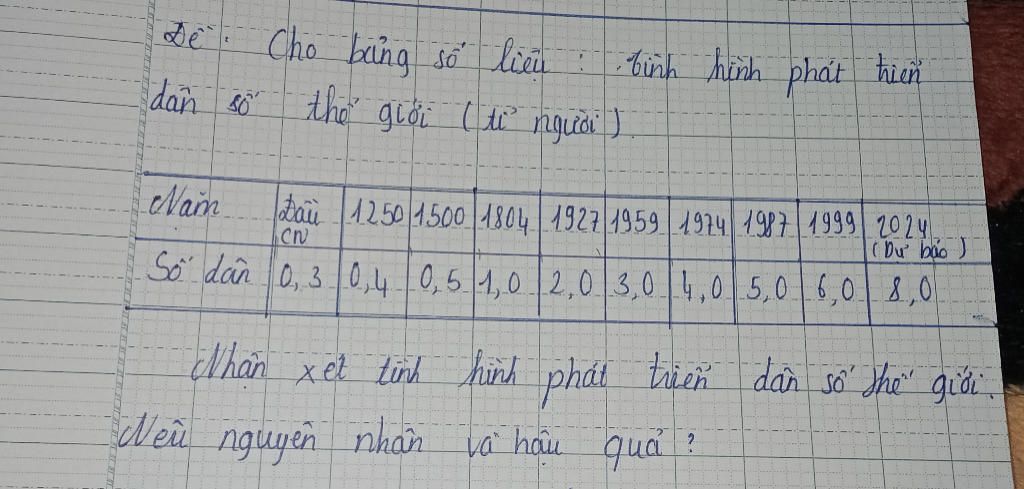 Đề: Cho bảng số liệu: tình hình phát triển
dân số thế giới (tỉ người)
Năm Đầu CN 1250 1500 1804 1927 1959 1974 1987 1999 2024 (Dự báo)
Số dân 0,3 0,4 0,5 1,0 2,0 3,0 4,0 5,0 6,0 8,0
Nhận xét tình hình phát triển dân số thế giới.
Nêu nguyên nhân và hậu quả?